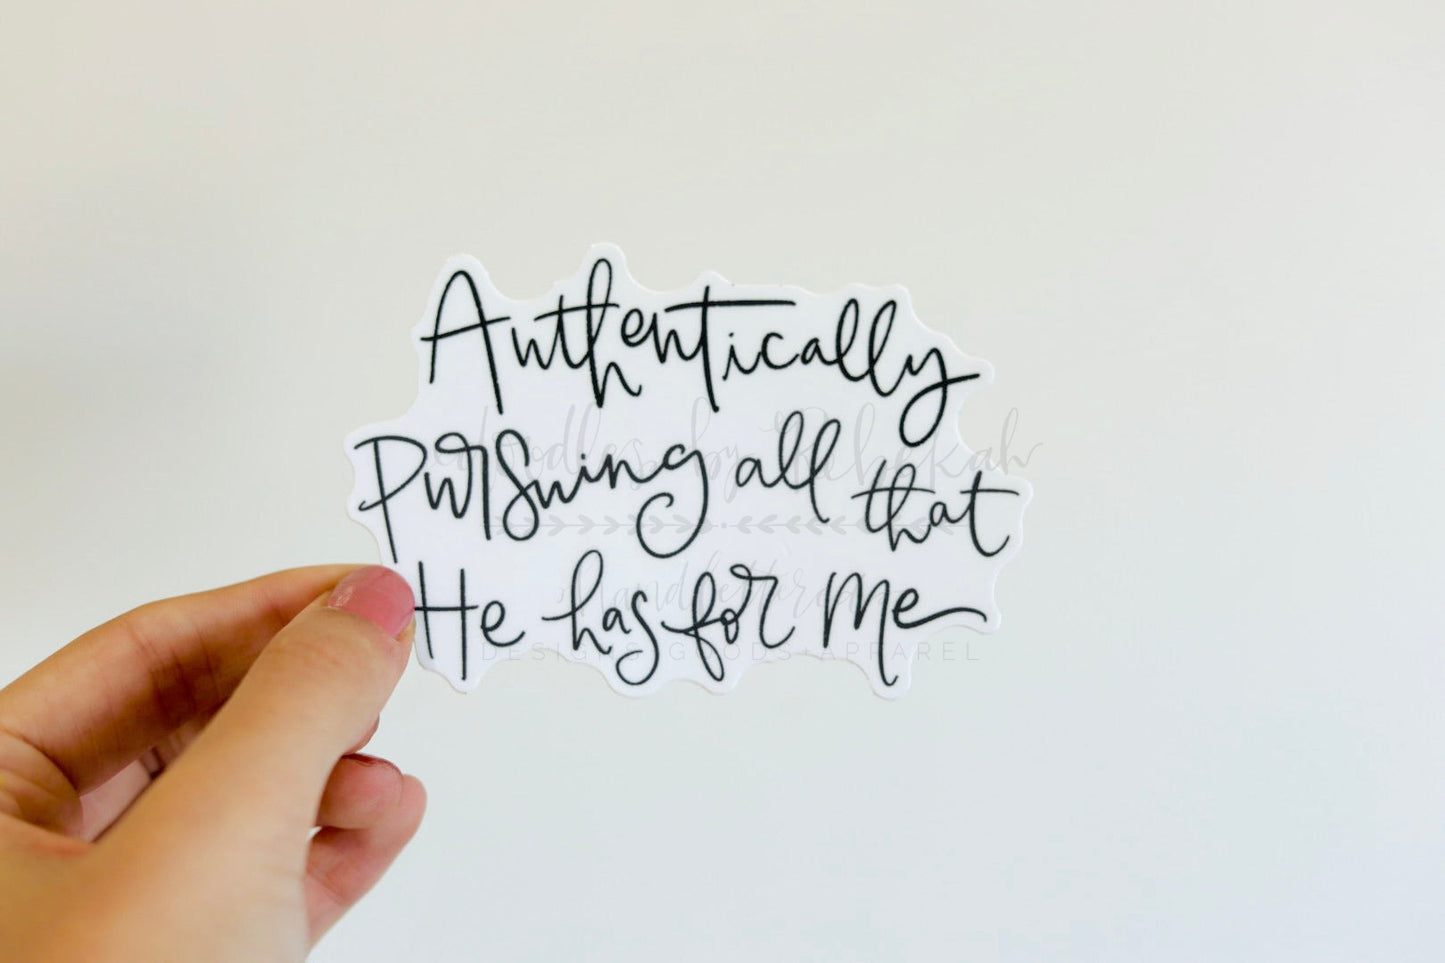 Authentically
Pursuing all that
He has for Me
doodles by Rebekah
Handlettered
DESIGNS GOODS APPAREL